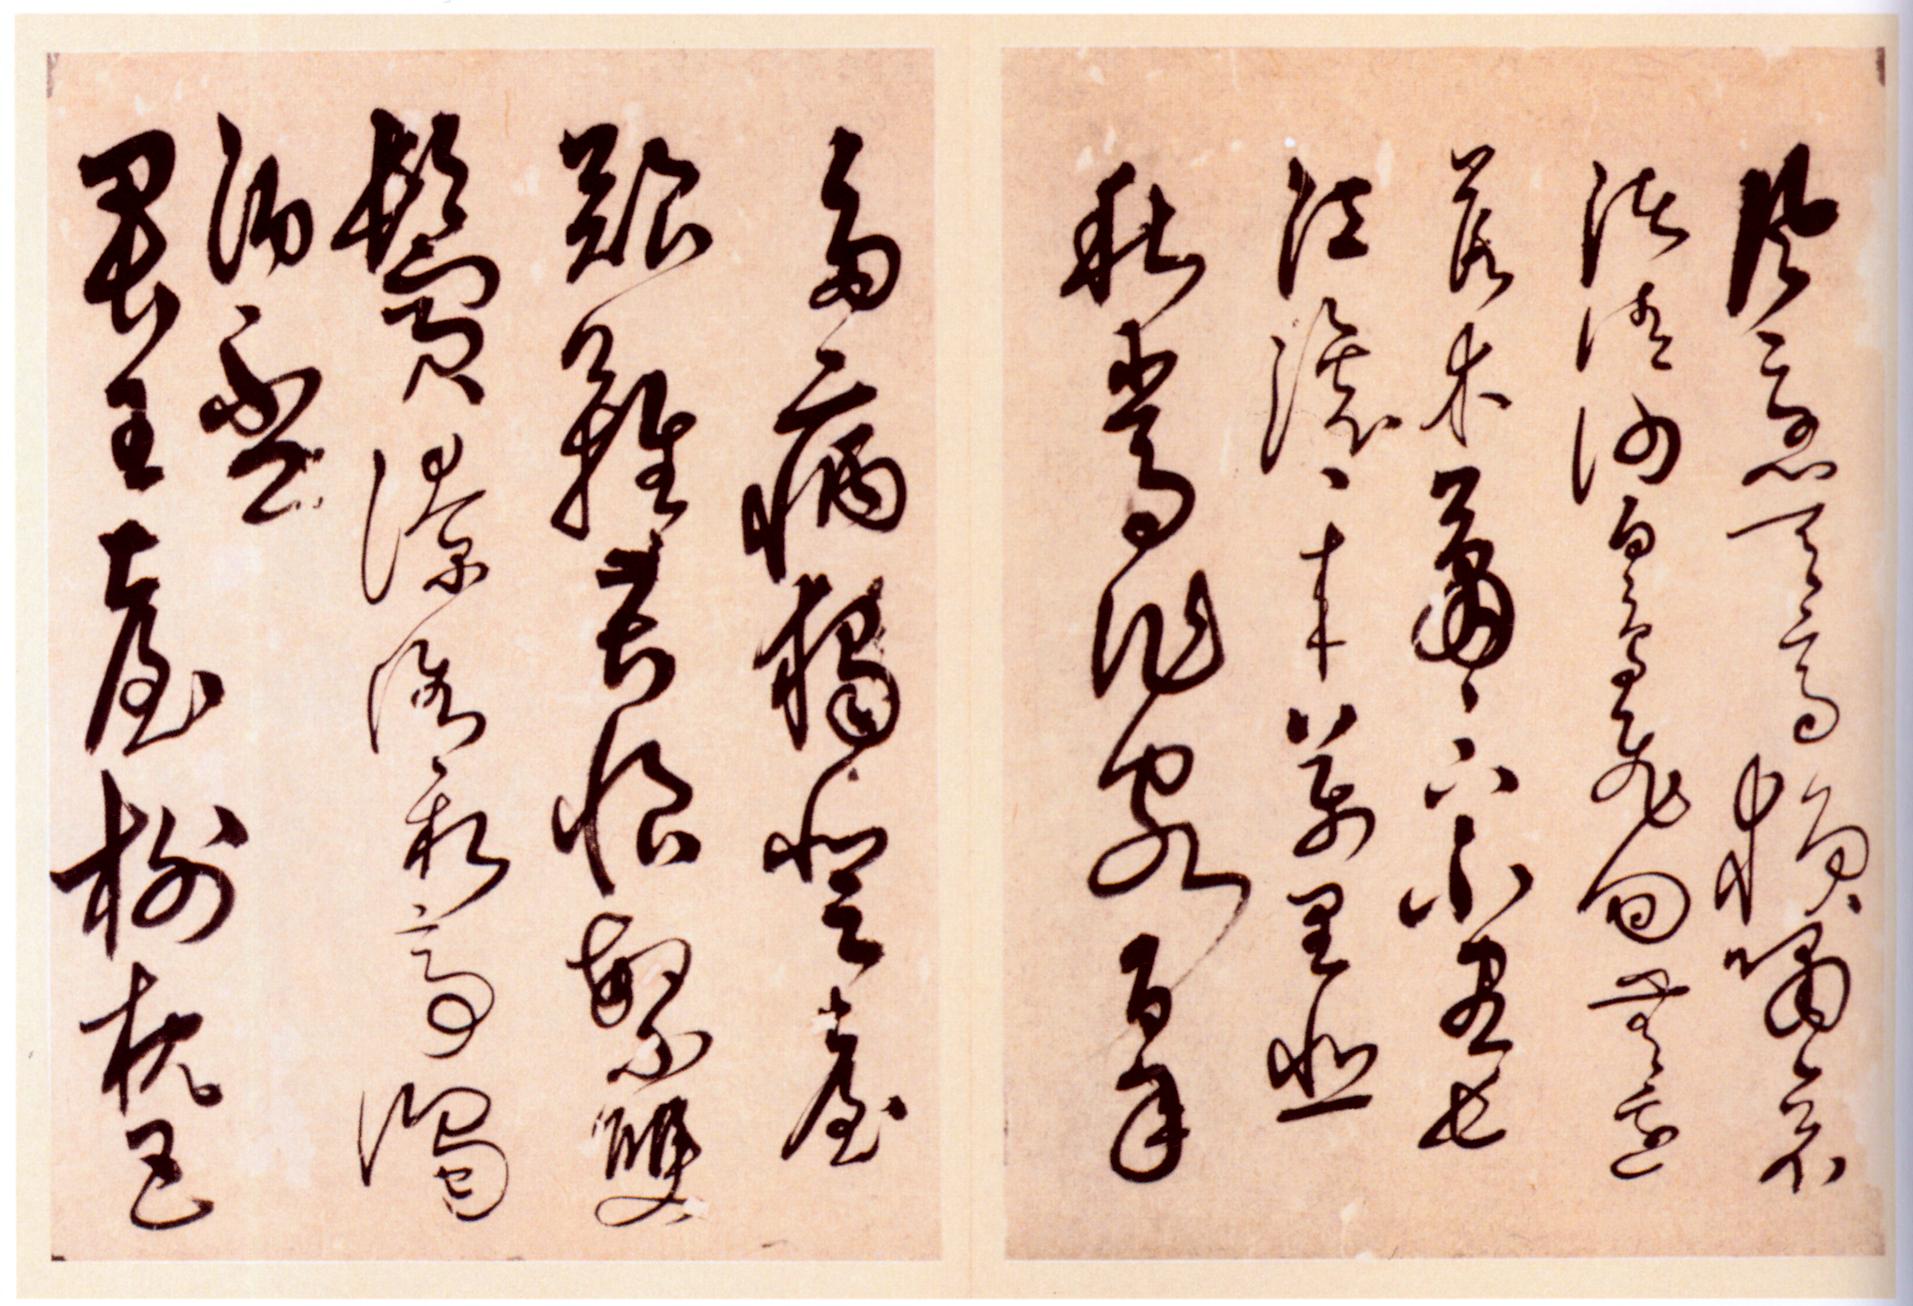 風急天高猿嘯哀
渚清沙白鳥飛回無邊
落木蕭〻下不盡長
江滾〻來萬里悲
秋常作客百年
多病獨登臺
艱難苦恨繁雙
鬢潦倒新亭濁
酒盃
君王臺榭枕巴